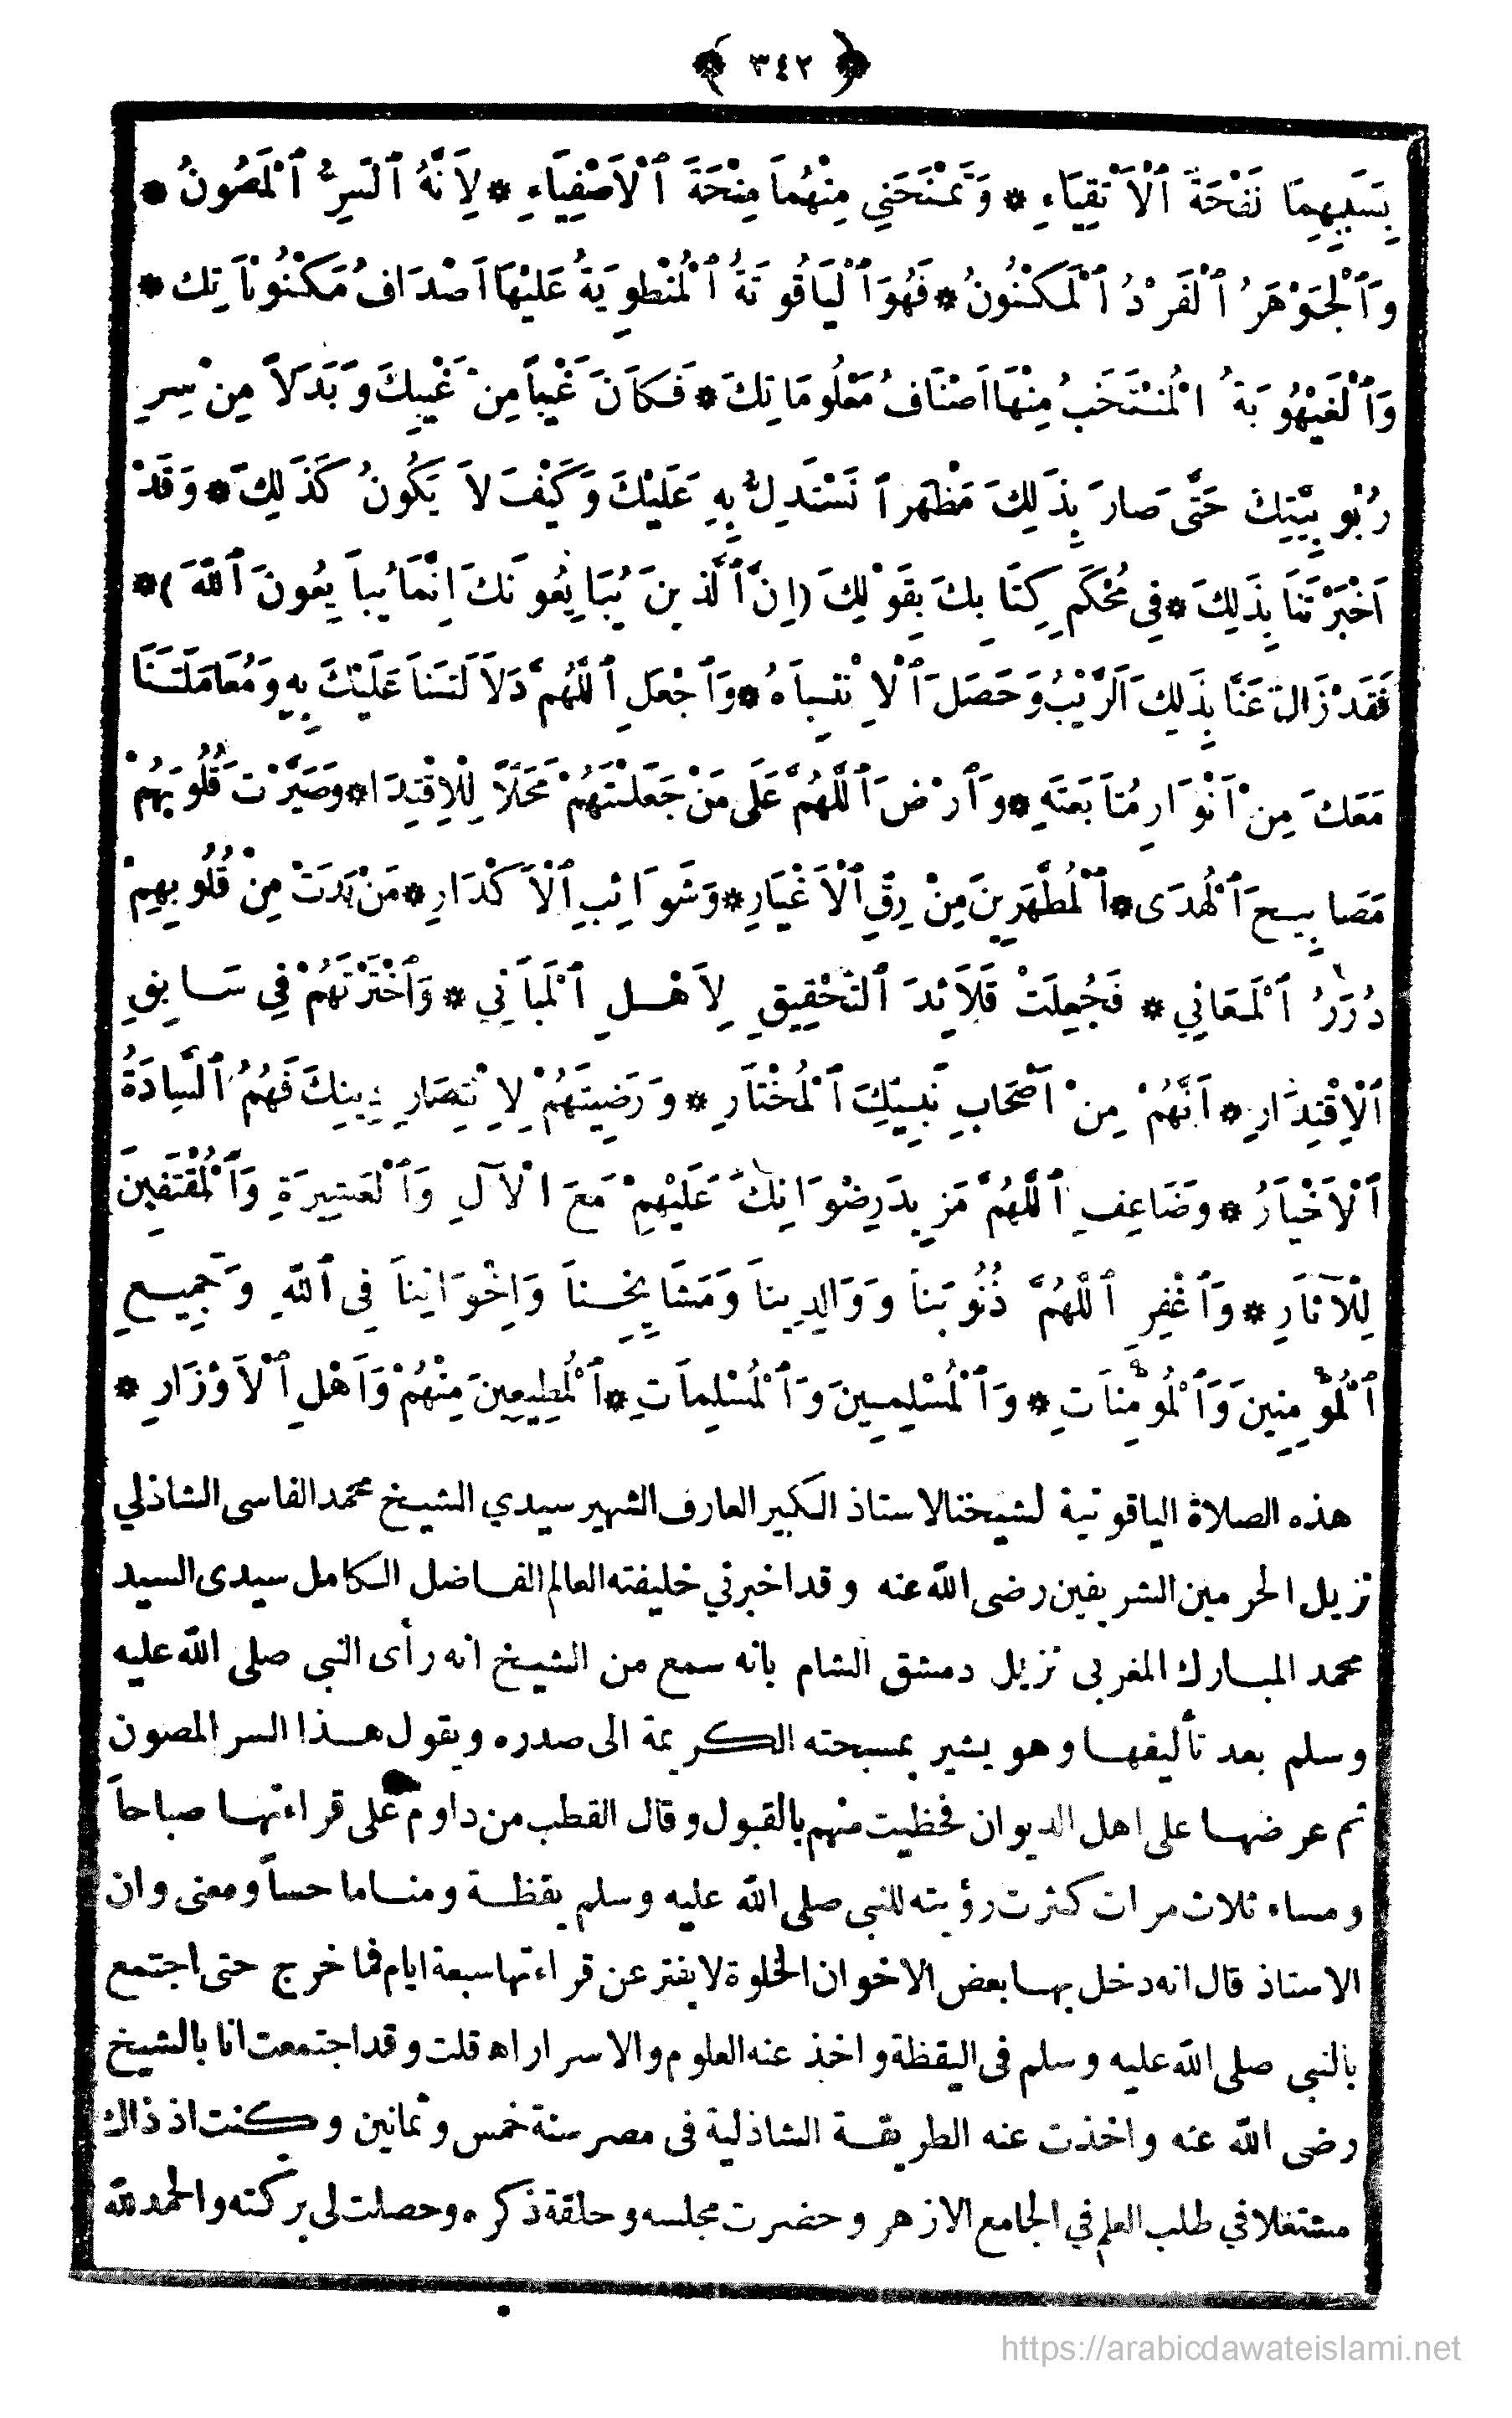 ﴿ ٣٤٢ ﴾
بِسَبَبِهِمَا نَفْحَةَ ٱلْأَتْقِيَاءِ * وَتَمْنَحَنِي مِنْهُمَا مِنْحَةَ ٱلْاَصْفِيَاءِ * لِاَنَّهُ ٱلسِّرُّ ٱلْمَصُونُ *
وَٱلْجَوْهَرُ ٱلْفَرْدُ ٱلْمَكْنُونُ * فَهُوَ ٱلْيَاقُوتَةُ ٱلْمُنْطَوِيَةُ عَلَيْهَا اَصْدَافُ مَكْنُونَاتِكَ *
وَٱلْغَيْهُوبَةُ ٱلْمُنْتَخَبُ مِنْهَا اَصْنَافُ مَعْلُومَاتِكَ * فَكَانَ غَيْبًا مِنْ غَيْبِكَ وَبَدَلًا مِنْ سِرِّ
رُبُوبِيَّتِكَ حَتَّى صَارَ بِذَلِكَ مَظْهَرًا نَسْتَدِلُّ بِهِ عَلَيْكَ وَكَيْفَ لاَ يَكُونُ كَذَلِكَ * وَقَدْ
اَخْبَرْتَنَا بِذَلِكَ * فِي مُحْكَمِ كِتَابِكَ بِقَوْلِكَ (اِنَّ ٱلَّذِينَ يُبَايِعُونَكَ اِنَّمَا يُبَايِعُونَ ٱللهَ) *
فَقَدْ زَالَ عَنَّا بِذَلِكَ ٱلرَّيْبُ وَحَصَلَ ٱلْاِنْتِبَاهُ * وَٱجْعَلِ ٱللّٰهُمَّ دَلَالَتَنَا عَلَيْكَ بِهِ وَمُعَامَلَتَنَا
مَعَكَ مِنْ اَنْوَارِ مُتَابَعَتِهِ * وَٱرْضَ ٱللّٰهُمَّ عَلَى مَنْ جَعَلْتَهُمْ مَحَلًّا لِلْاِقْتِدَا * وَصَيَّرْتَ قُلُوبَهُمْ
مَصَابِيحَ ٱلْهُدَى * ٱلْمُطَهَّرِينَ مِنْ رِقِّ ٱلْاَغْيَارِ * وَشَوَائِبِ ٱلْاَكْدَارِ * مَنْ بَدَتْ مِنْ قُلُوبِهِمْ
دُرَرُ ٱلْمَعَانِي * فَجُعِلَتْ قَلَائِدَ ٱلتَّحْقِيقِ لِاَهْلِ ٱلْمَبَانِي * وَٱخْتَرْتَهُمْ فِي سَابِقِ
ٱلْاِقْتِدَارِ * اَنَّهُمْ مِنْ اَصْحَابِ نَبِيِّكَ ٱلْمُخْتَارِ * وَرَضِيتَهُمْ لِاِنْتِصَارِ دِينِكَ فَهُمُ ٱلسَّادَةُ
ٱلْاَخْيَارُ * وَضَاعِفِ ٱللّٰهُمَّ مَزِيدَ رِضْوَانِكَ عَلَيْهِمْ مَعَ الْآلِ وَٱلْعَشِيرَةِ وَٱلْمُقْتَفِينَ
لِلْآثَارِ * وَٱغْفِرِ ٱللّٰهُمَّ ذُنُوبَنَا وَوَالِدِينَا وَمَشَايِخِنَا وَاِخْوَانِنَا فِي ٱللهِ وَجَمِيعِ
ٱلْمُؤْمِنِينَ وَٱلْمُؤْمِنَاتِ * وَٱلْمُسْلِمِينَ وَٱلْمُسْلِمَاتِ * ٱلْمُطِيعِينَ مِنْهُمْ وَاَهْلِ ٱلْاَوْزَارِ *
هذه الصلاة الياقوتية لشيخنا الاستاذ الكبير العارف الشهير سيدي الشيخ محمد الفاسى الشاذلي
نزيل الحرمين الشريفين رضى الله عنه وقد اخبرني خليفته العالم الفاضل الكامل سيدى السيد
محمد المبارك المغربى نزيل دمشق الشام بانه سمع من الشيخ انه رأى النبى صلى الله عليه
وسلم بعد تأليفها وهو يشير بمسبحته الكريمة الى صدره ويقول هذا السر المصون
ثم عرضها على اهل الديوان فحظيت منهم بالقبول وقال القطب من داوم على قراءتها صباحاً
ومساء ثلاث مرات كثرت رؤيته للنبى صلى الله عليه وسلم يقظة ومناما حساً ومعنى وان
الاستاذ قال انه دخل بها بعض الاخوان الخلوة لا يفتر عن قراءتها سبعة ايام فما خرج حتى اجتمع
بالنبى صلى الله عليه وسلم فى اليقظة واخذ عنه العلوم والاسرار اه قلت وقد اجتمعت انا بالشيخ
رضى الله عنه واخذت عنه الطريقة الشاذلية فى مصر سنة خمس وثمانين وكنت اذ ذاك
مشتغلا في طلب العلم في الجامع الازهر وحضرت مجلسه وحلقة ذكره وحصلت لى بركته والحمد لله
https://arabicdawateislami.net